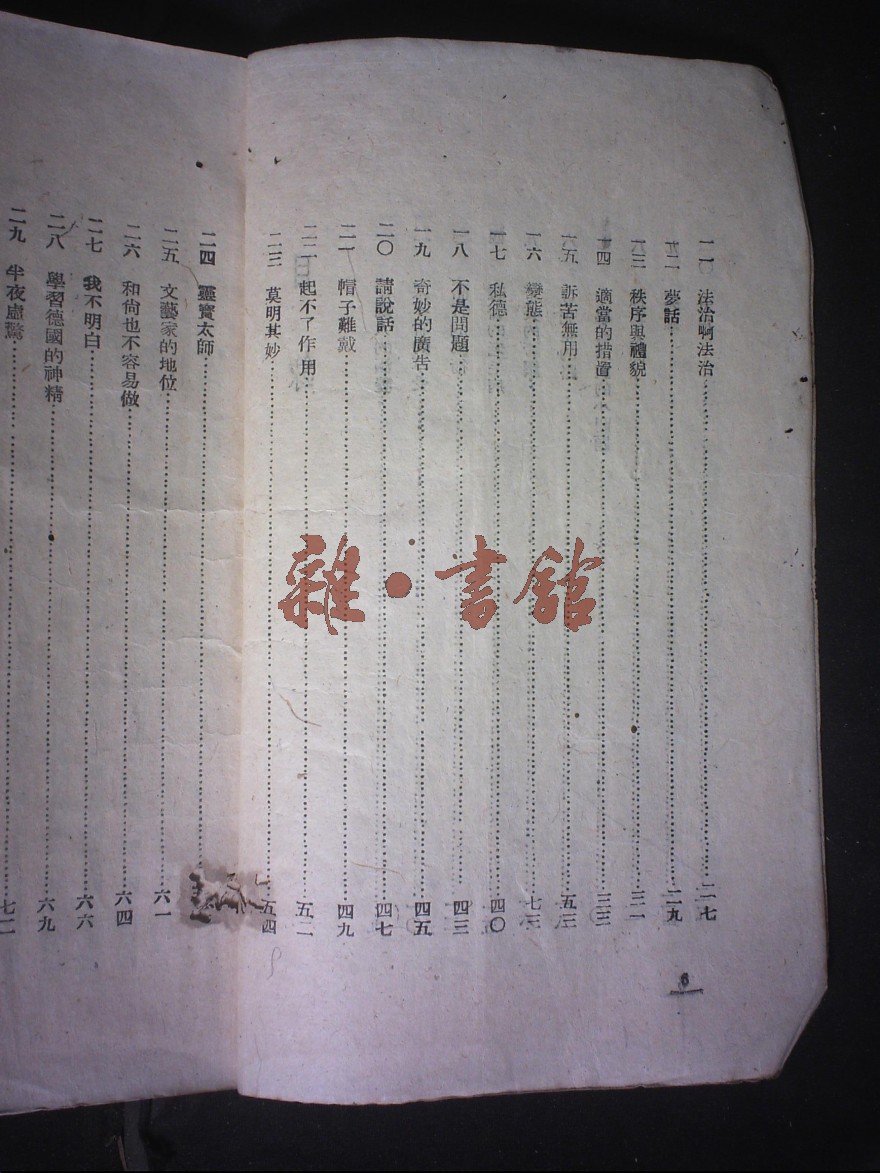 一一 法治啊法治……二七
一二 夢話……二九
一三 秩序與禮貌……三一
一四 適當的措置……三三
一五 訴苦無用……五三
一六 變態……七三
一七 私德……四〇
一八 不是問題……四三
一九 奇妙的廣告……四五
二〇 請說話……四七
二一 帽子難戴……四九
二二 起不了作用……五二
二三 莫明其妙……五四
二四 靈寶太師……
二五 文藝家的地位……六一
二六 和尙也不容易做……六四
二七 我不明白……六六
二八 學習德國的神精……六九
二九 半夜虛驚……
6
雜·書館